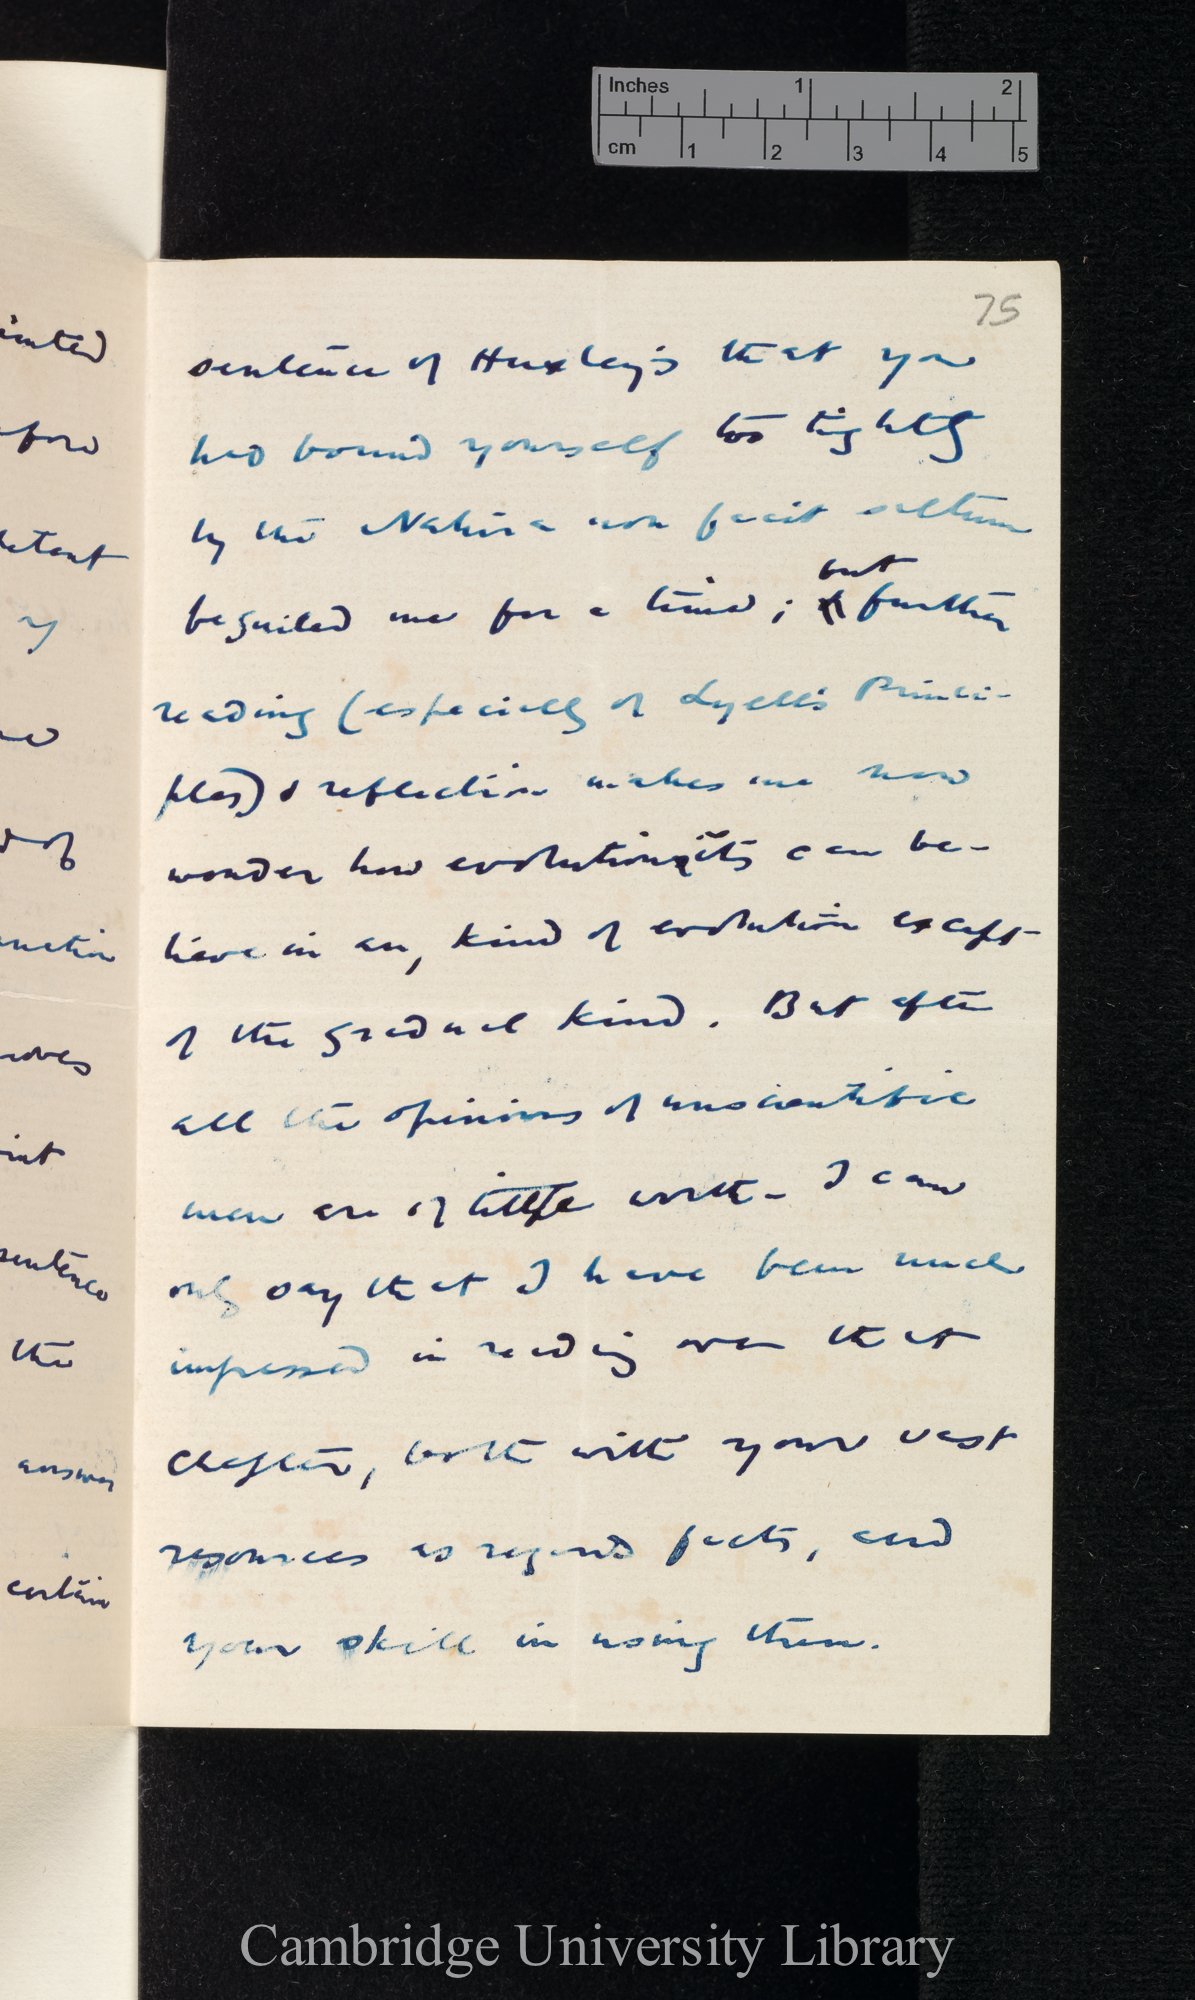 Inches 1 2
cm 1 2 3 4 5
75
sentence of Huxley's that you
had bound yourself too tightly
by the Natura non facit saltum
beguiled me for a time; but further
reading (especially of Lyell's Princi-
ples) & reflection makes me now
wonder how evolutionists can be-
lieve in any kind of evolution except
of the gradual kind. But after
all the opinions of unscientific
men are of little worth - I can
only say that I have been much
impressed in reading over that
chapter, both with your vast
resources as regards facts, and
your skill in using them.
sentence
the
answer
certain
Cambridge University Library